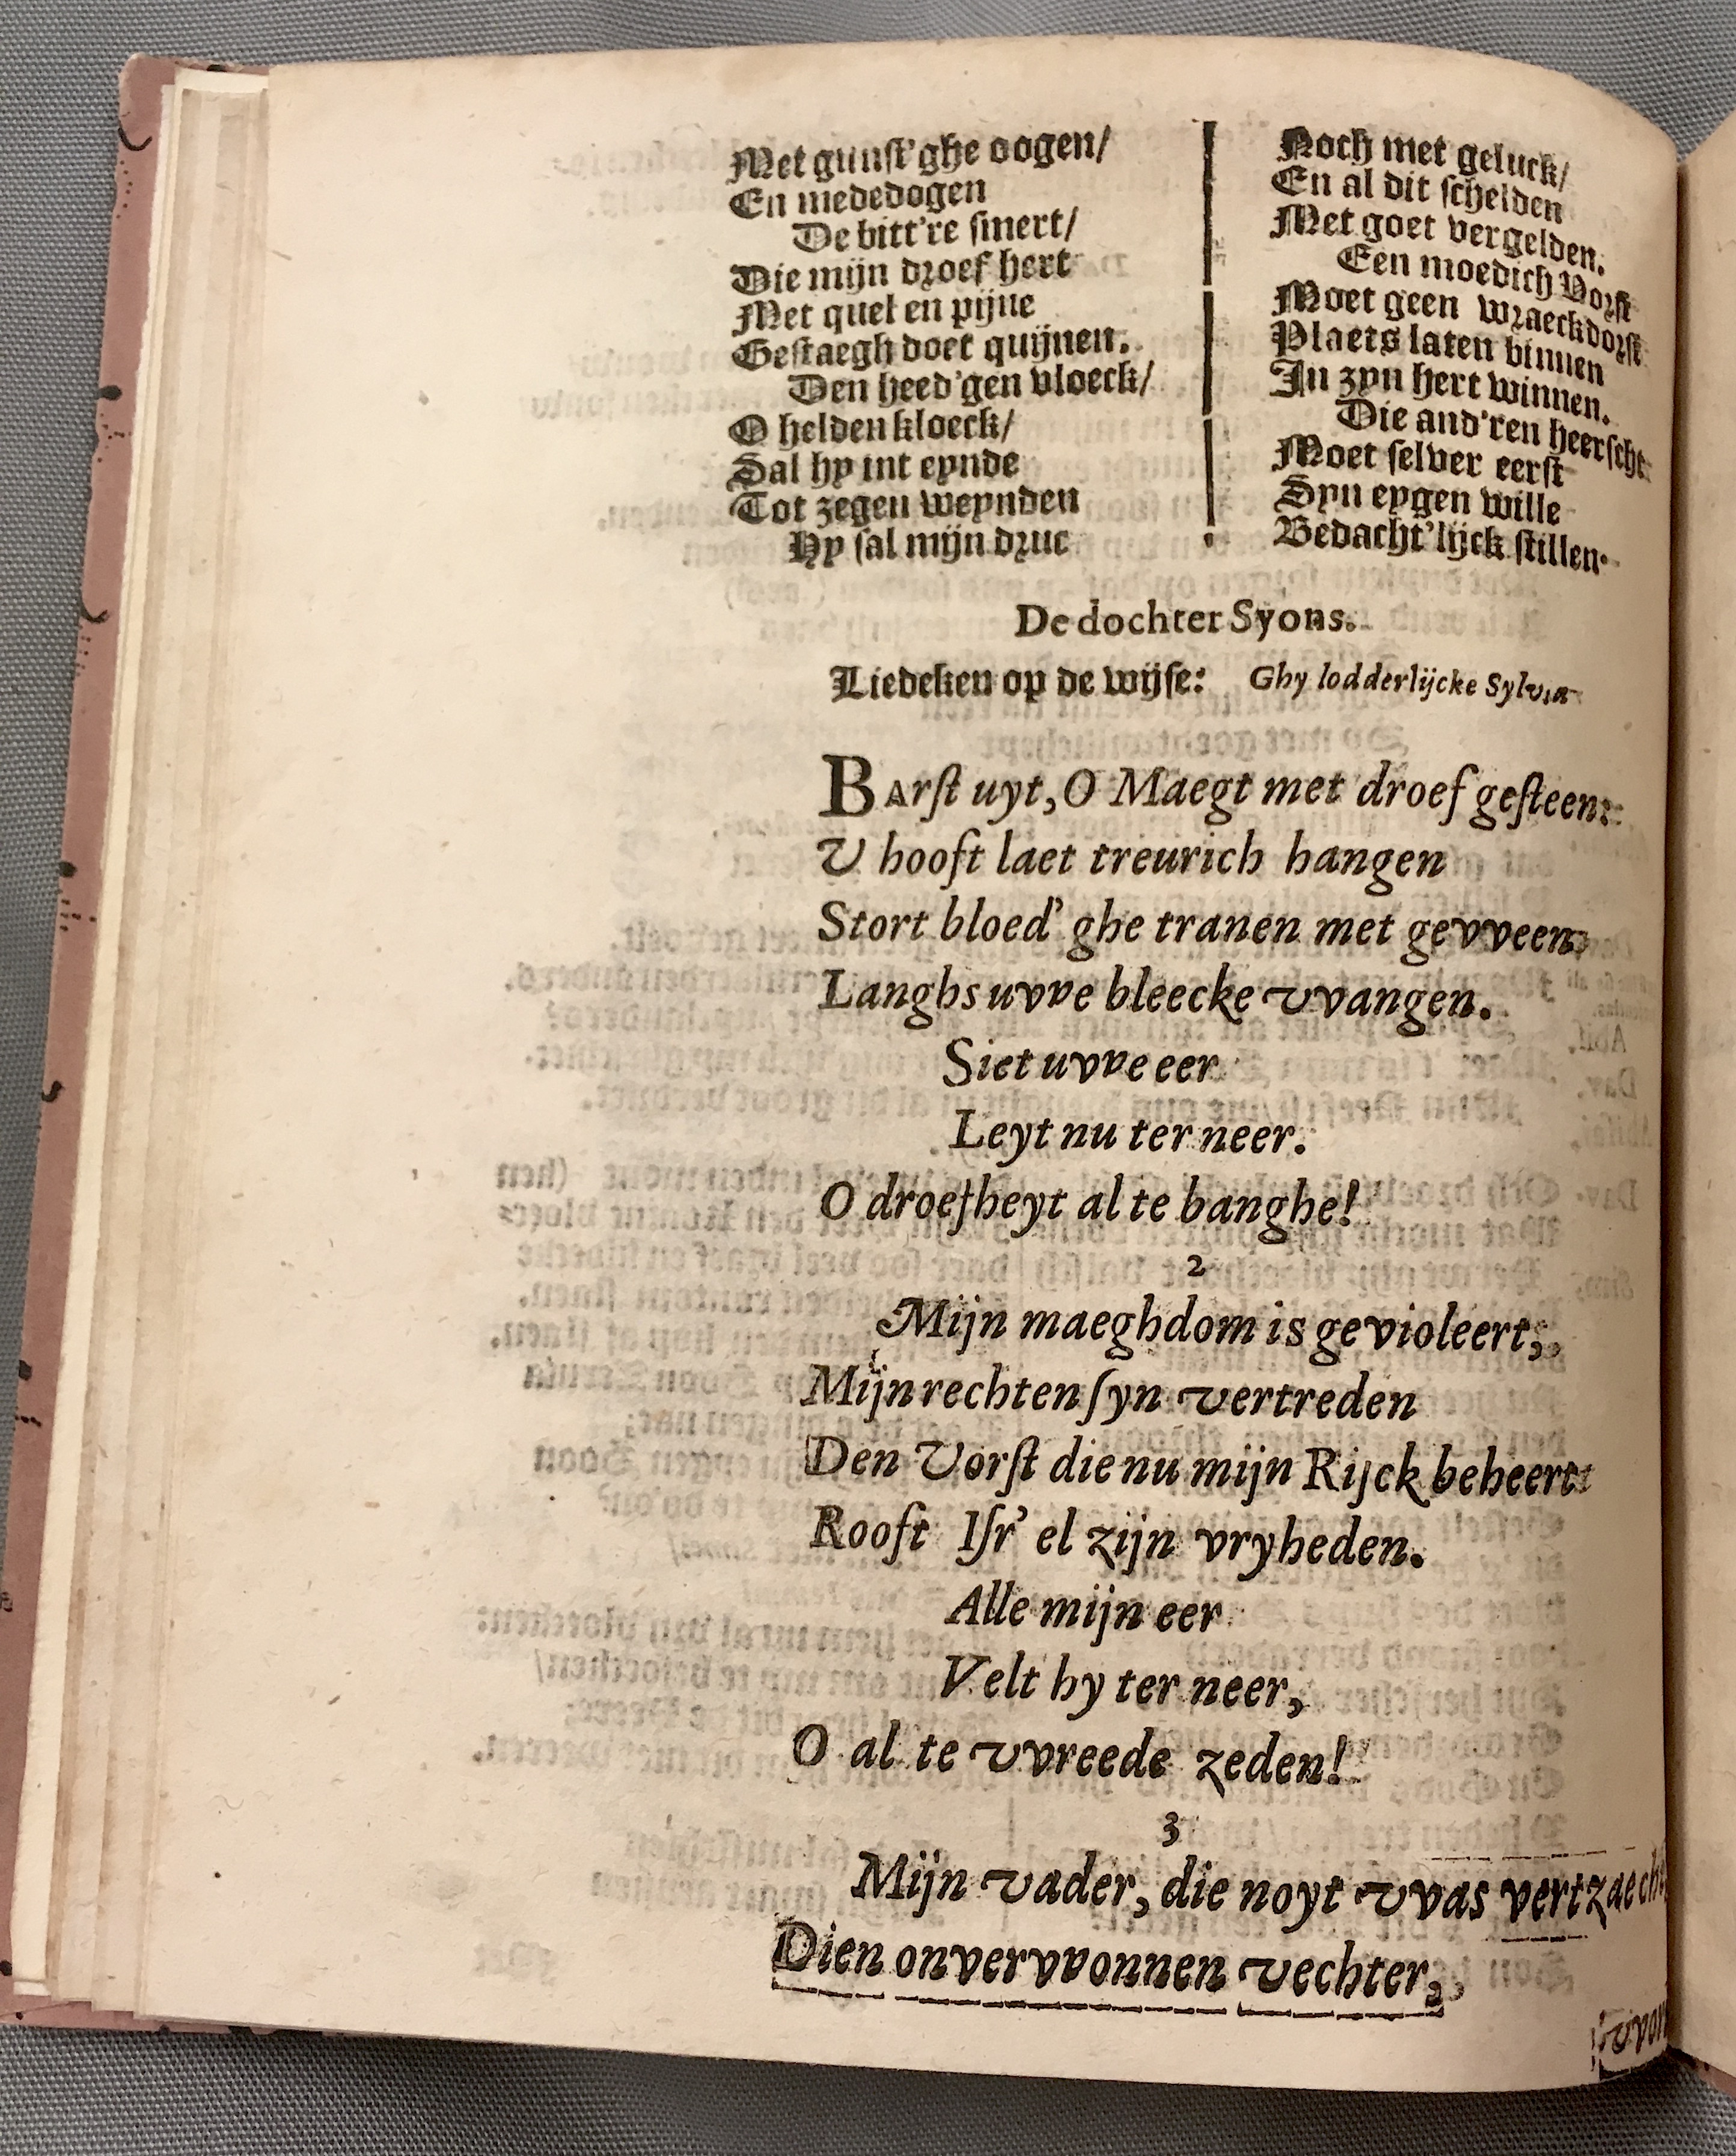 Met gunst'ghe oogen/
En mededogen
De bitt're smert/
Die mijn droef hert
Met quel en pijne
Gestaegh doet quijnen.
Den heed'gen vloeck/
O helden kloeck/
Sal hy int eynde
Tot zegen weynden
Hy sal mijn druc
Noch met geluck/
En al dit schelden
Met goet vergelden.
Een moedich Vorst
Moet geen wraeckdorst
Plaets laten binnen
In zyn hert winnen.
Die and'ren heerscht
Moet selver eerst
Syn eygen wille
Bedacht'lijck stillen.
De dochter Syons.
Liedeken op de wijse: Ghy lodderlijcke Sylvia
BArst uyt, O Maegt met droef gesteen:
V hooft laet treurich hangen
Stort bloed' ghe tranen met gevveen,
Langhs uvve bleecke vvangen.
Siet uvve eer
Leyt nu ter neer.
O droefheyt al te banghe!
2
Mijn maeghdom is gevioleert,
Mijn rechten syn vertreden
Den Vorst die nu mijn Rijck beheert
Rooft Isr' el zijn vryheden.
Alle mijn eer
Velt hy ter neer,
O al te vvreede zeden!
3
Mijn vader, die noyt vvas vertzaecht
Dien onvervvonnen vechter,